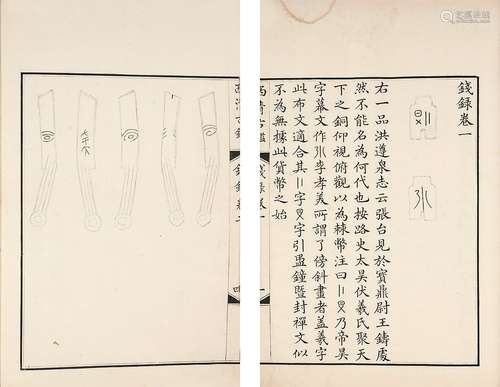 錢錄卷一
右一品洪遵泉志云張台見於寶鼎尉王鑄處
然不能名為何代也按路史太昊伏羲氏聚天
下之銅仰視俯觀以為棘幣注曰〢㕛乃帝昊
字幕文作〣李孝美所謂了傍斜畫者蓋羲字
此布文適合其〢字㕛字引盄鐘暨封禪文似
不為無據此貨幣之始
西清古鑑
錢錄卷一
一
西清古鑑
錢錄卷二
四